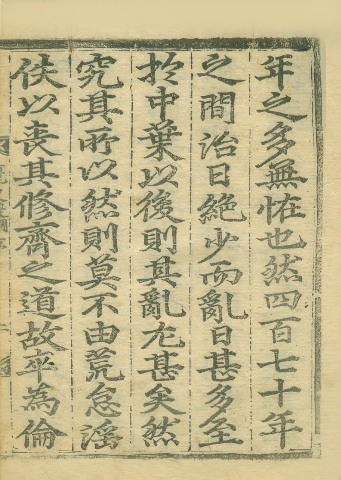 年之多無恠也然四百七十年
之間治日絶少而亂日甚多至
扵中葉以後則其亂尤甚矣然
究其所以然則莫不由荒怠淫
佚以喪其修齊之道故卒為倫